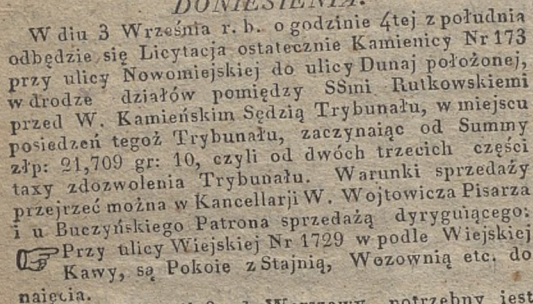 DONIESIENIA.
W diu 3 Września r. b. o godzinie 4tej z południa
odbędzie się Licytacja ostatecznie Kamienicy Nr 173
przy ulicy Nowomiejskiej do ulicy Dunaj położonej,
w drodze działów pomiędzy SSmi Rutkowskiemi
przed W. Kamieńskim Sędzią Trybunału, w miejscu
posiedzeń tegoż Trybunału, zaczynaiąc od Summy
złp: 21,709 gr: 10, czyli od dwóch trzecich części
taxy zdozwolenia Trybunału. Warunki sprzedaży
przejrzeć można w Kancellarji W. Wojtowicza Pisarza
i u Buczyńskiego Patrona sprzedażą dyryguiącego:
Przy ulicy Wiejskiej Nr 1729 w podle Wiejskiej
Kawy, są Pokoie z Stajnią, Wozownią etc. do
najęcia.
Warszawy potrzebny jest